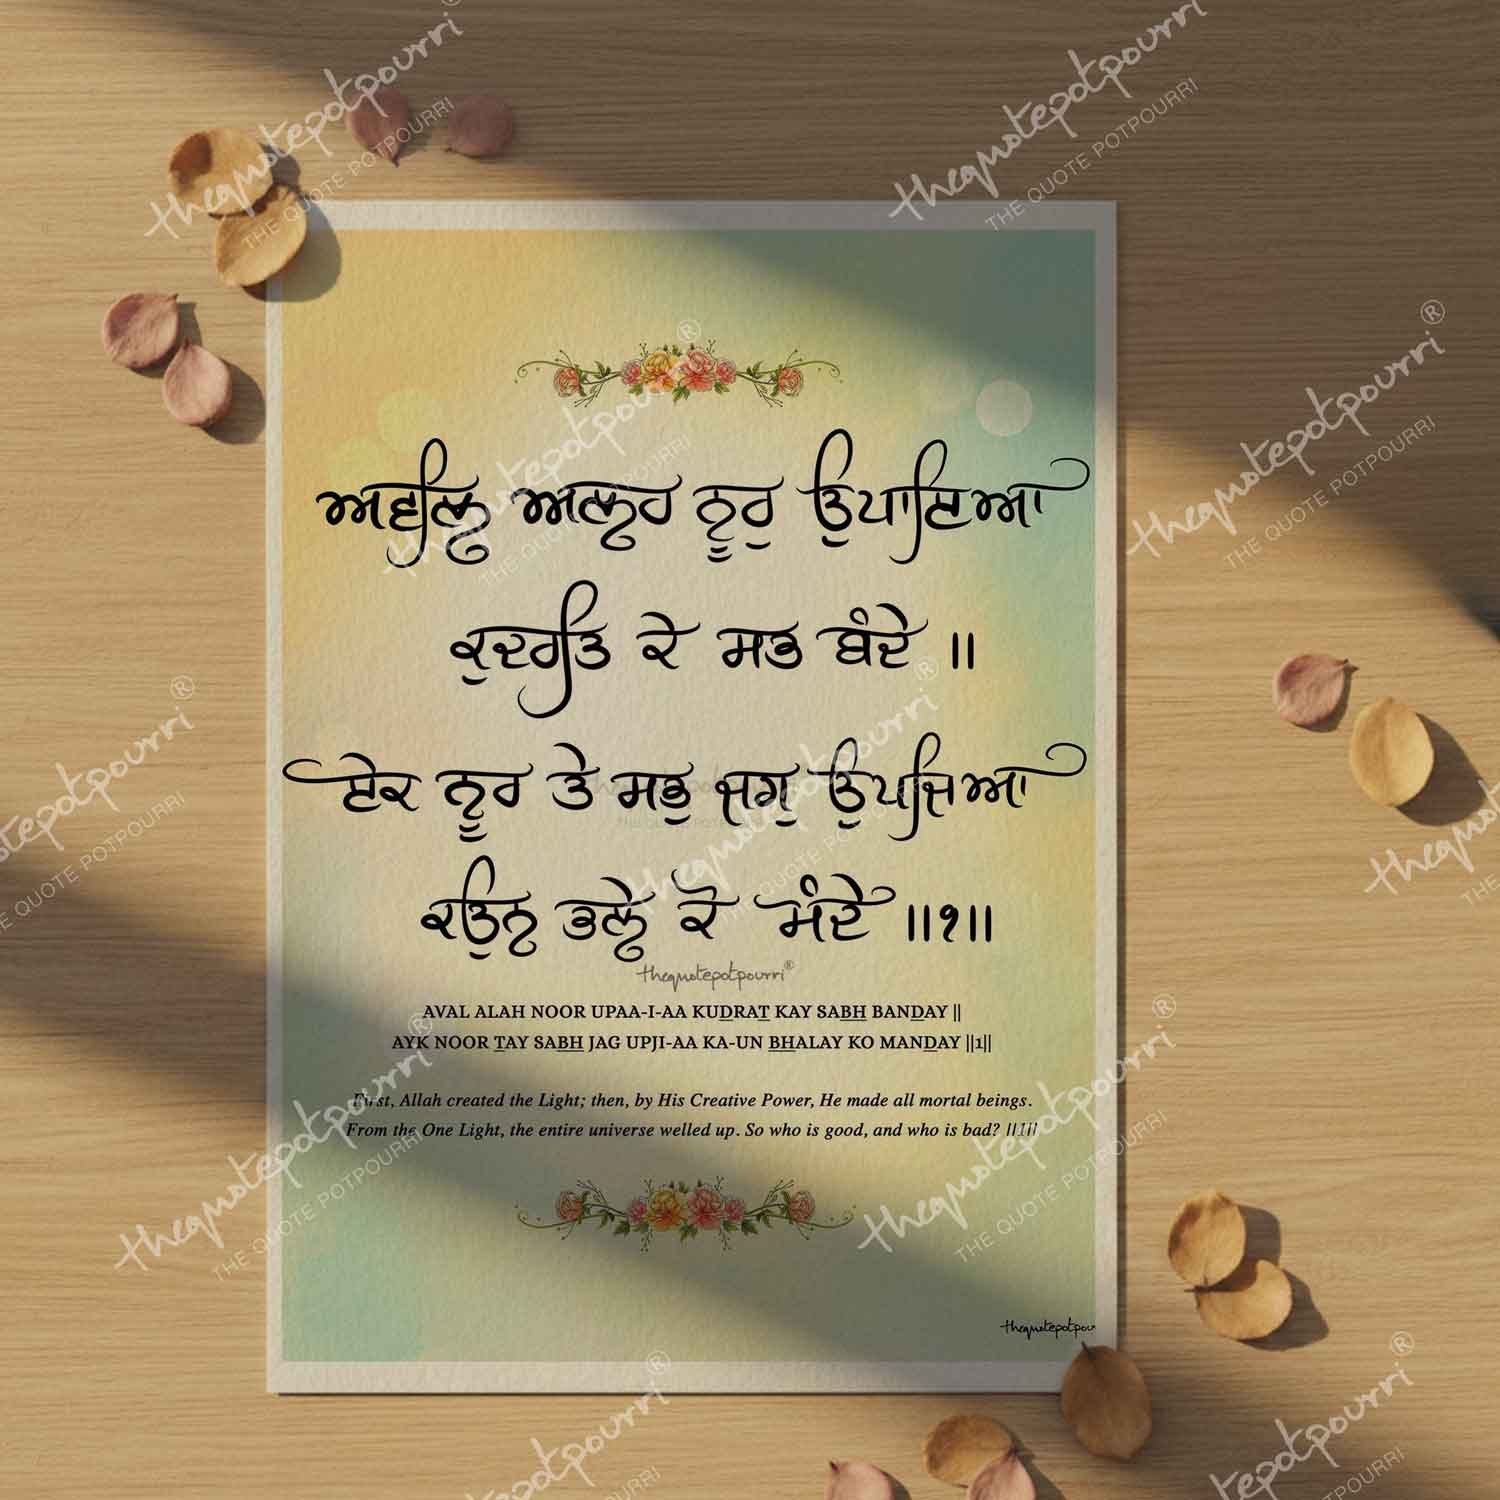 thequotepotpourri®
THE QUOTE POTPOURRI
thequotepotpourri®
THE QUOTE POTPOURRI
ਅਵਲਿ ਅਲਹ ਨੂਰੁ ਉਪਾਇਆ
ਕੁਦਰਤਿ ਕੇ ਸਭ ਬੰਦੇ ॥
ਏਕ ਨੂਰ ਤੇ ਸਭੁ ਜਗੁ ਉਪਜਿਆ
ਕਉਨ ਭਲੇ ਕੋ ਮੰਦੇ ॥੧॥
thequotepotpourri®
AVAL ALAH NOOR UPAA-I-AA KUDRAT KAY SABH BANDAY ||
AYK NOOR TAY SABH JAG UPJI-AA KA-UN BHALAY KO MANDAY ||1||
First, Allah created the Light; then, by His Creative Power, He made all mortal beings.
From the One Light, the entire universe welled up. So who is good, and who is bad? ||1||
thequotepotpour